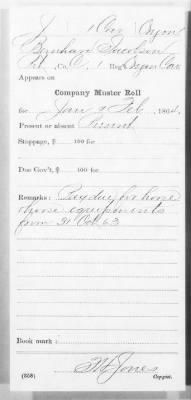 J 1 Cav Oregon
Barnham Jacobson
Pvt, Co. C, 1 Reg't Oregon Cav.
Appears on
Company Muster Roll
for Jan & Feb, 1864.
Present or absent Present
Stoppage, $ 100 for
Due Gov't, $ 100 for
Remarks: Pay due for horse
& horse equipments
from 31 Oct 63
Book mark:
Jones
(358) Copyist.